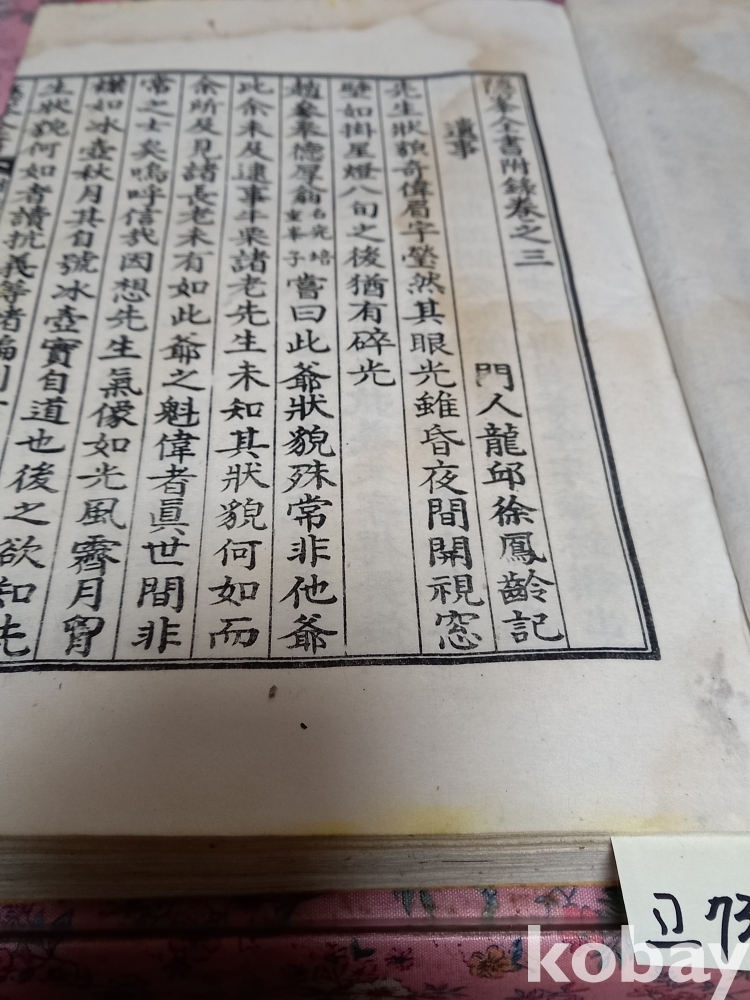 隱峯全書附錄卷之三
遺事
門人龍邱徐鳳齡記
先生狀貌奇偉眉宇瑩然其眼光雖昏夜間開視窓
壁如掛星燈八旬之後猶有碎光
趙參奉德厚翁名光培重峯子嘗曰此爺狀貌殊常非他爺
比余未及逮事牛栗諸老先生未知其狀貌何如而
余所及見諸長老未有如此爺之魁偉者眞世間非
常之士矣嗚呼信哉因想先生氣像如光風霽月胷
襟如冰壺秋月其自號冰壺實自道也後之欲知先
生狀貌何如者讀抗義等諸編則
고 73
kobay